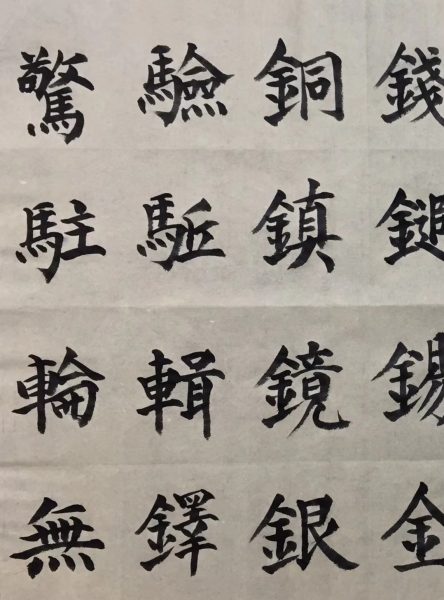 錢鎚錫金
銅鎮鏡銀
驗駈輯鐸
驚駐輪無